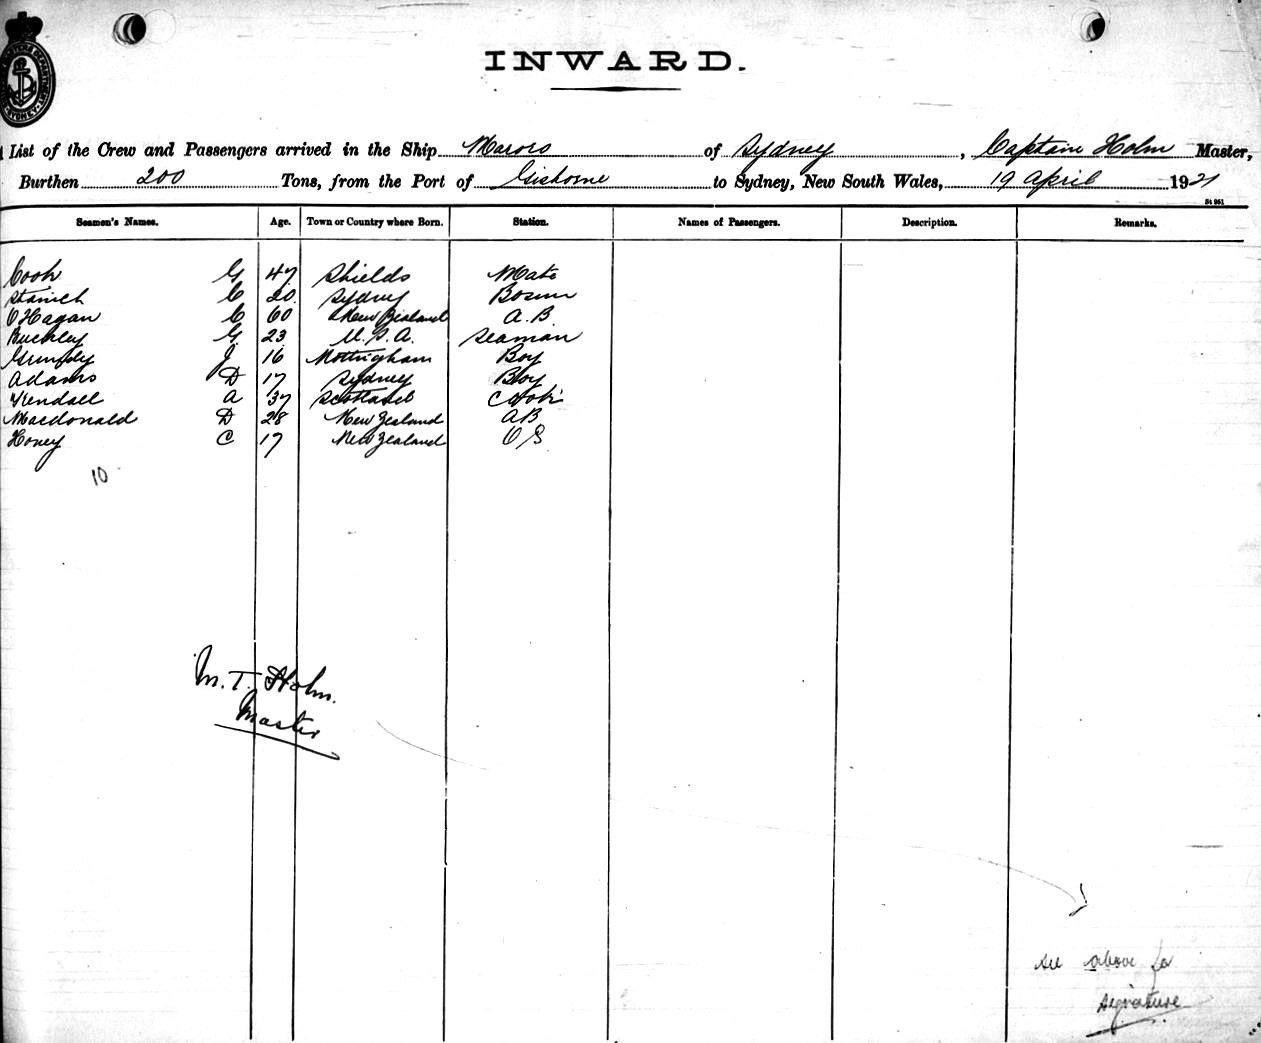 INWARD.
List of the Crew and Passengers arrived in the Ship Maroro of Sydney, Captain Holm Master,
Burthen 200 Tons, from the Port of Gisborne to Sydney, New South Wales, 19 April 1921
Seamen's Names. Age. Town or Country where Born. Station. Names of Passengers. Description. Remarks.
Cook G 47 Shields Mate
C 20 Sydney Bosun
O'Hagan C 60 New Zealand A.B
Buckley G 23 U.S.A. Seaman
J 16 Nottingham Boy
Adams D 17 Sydney Boy
Kendall A 37 Scotland Cook
Macdonald D 28 New Zealand AB
Honey C 17 New Zealand O S
10
M. T. Holm.
Master
see above for
signature